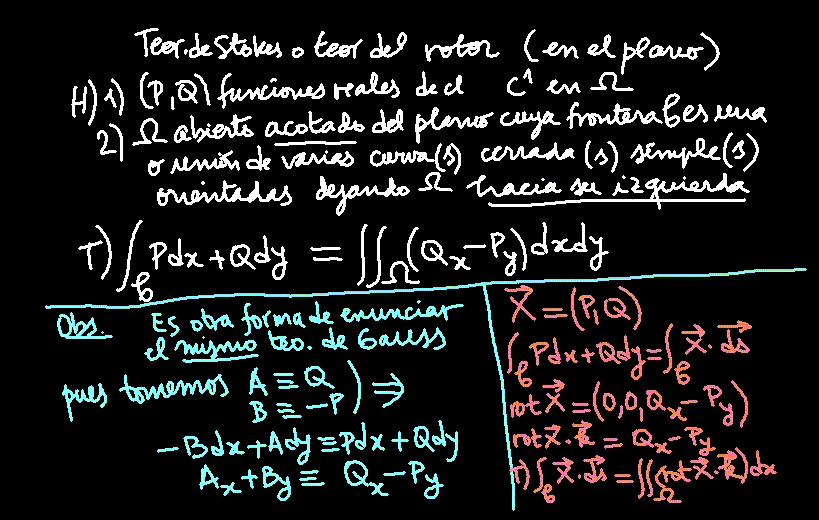 Teor. de Stokes o teor del rotor (en el plano)
H) 1) (P,Q) funciones reales de cl C¹ en Ω
2) Ω abierto acotado del plano cuya frontera ℓ es una
o unión de varias curva(s) cerrada(s) simple(s)
orientadas dejando Ω hacia su izquierda
T) ∫_ℓ Pdx + Qdy = ∬_Ω (Qx - Py) dxdy
Obs. Es otra forma de enunciar
el mismo teo. de Gauss
pues tomemos A ≡ Q
B ≡ -P ) ⇒
-Bdx + Ady ≡ Pdx + Qdy
Ax + By ≡ Qx - Py
X⃗ = (P,Q)
∫_ℓ Pdx + Qdy = ∫_ℓ X⃗ · ds⃗
rot X⃗ = (0,0,Qx - Py)
rot X⃗ · k⃗ = Qx - Py
T) ∫_ℓ X⃗ · ds⃗ = ∬_Ω (rot X⃗ · k⃗) dx